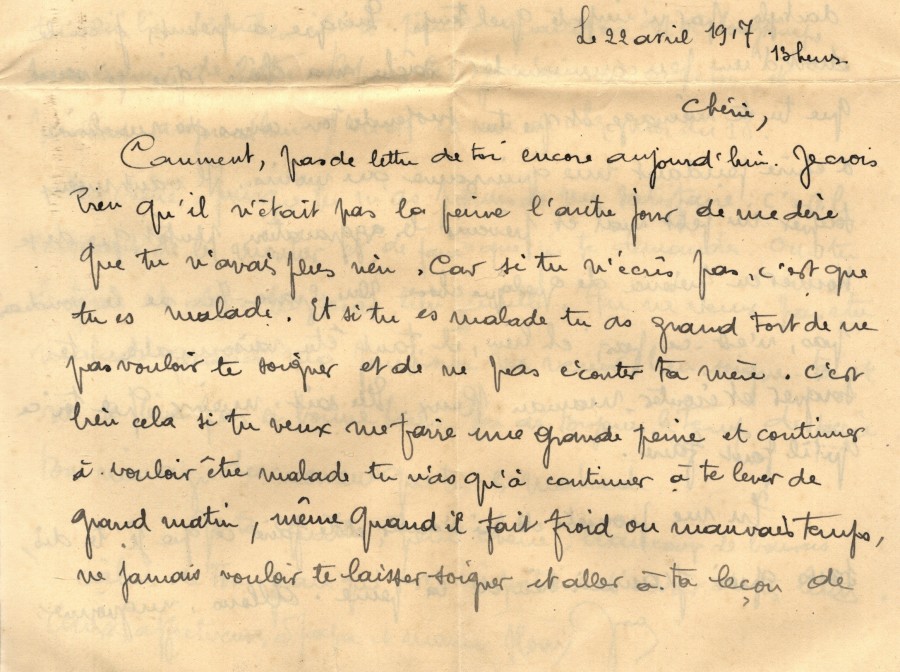 Le 22 avril 1917.
13 heurs
Chérie,
Comment, pas de lettre de toi encore aujourd'hui. Je crois
bien qu'il n'était pas la peine l'autre jour de me dire
que tu n'avais plus rien. Car si tu n'écris pas, c'est que
tu es malade. Et si tu es malade tu as grand tort de ne
pas vouloir te soigner et de ne pas écouter ta mère. C'est
bien cela si tu veux me faire une grande peine et continuer
à vouloir être malade tu n'as qu'à continuer à te lever de
grand matin, même quand il fait froid ou mauvais temps,
ne jamais vouloir te laisser soigner et aller à ta leçon de